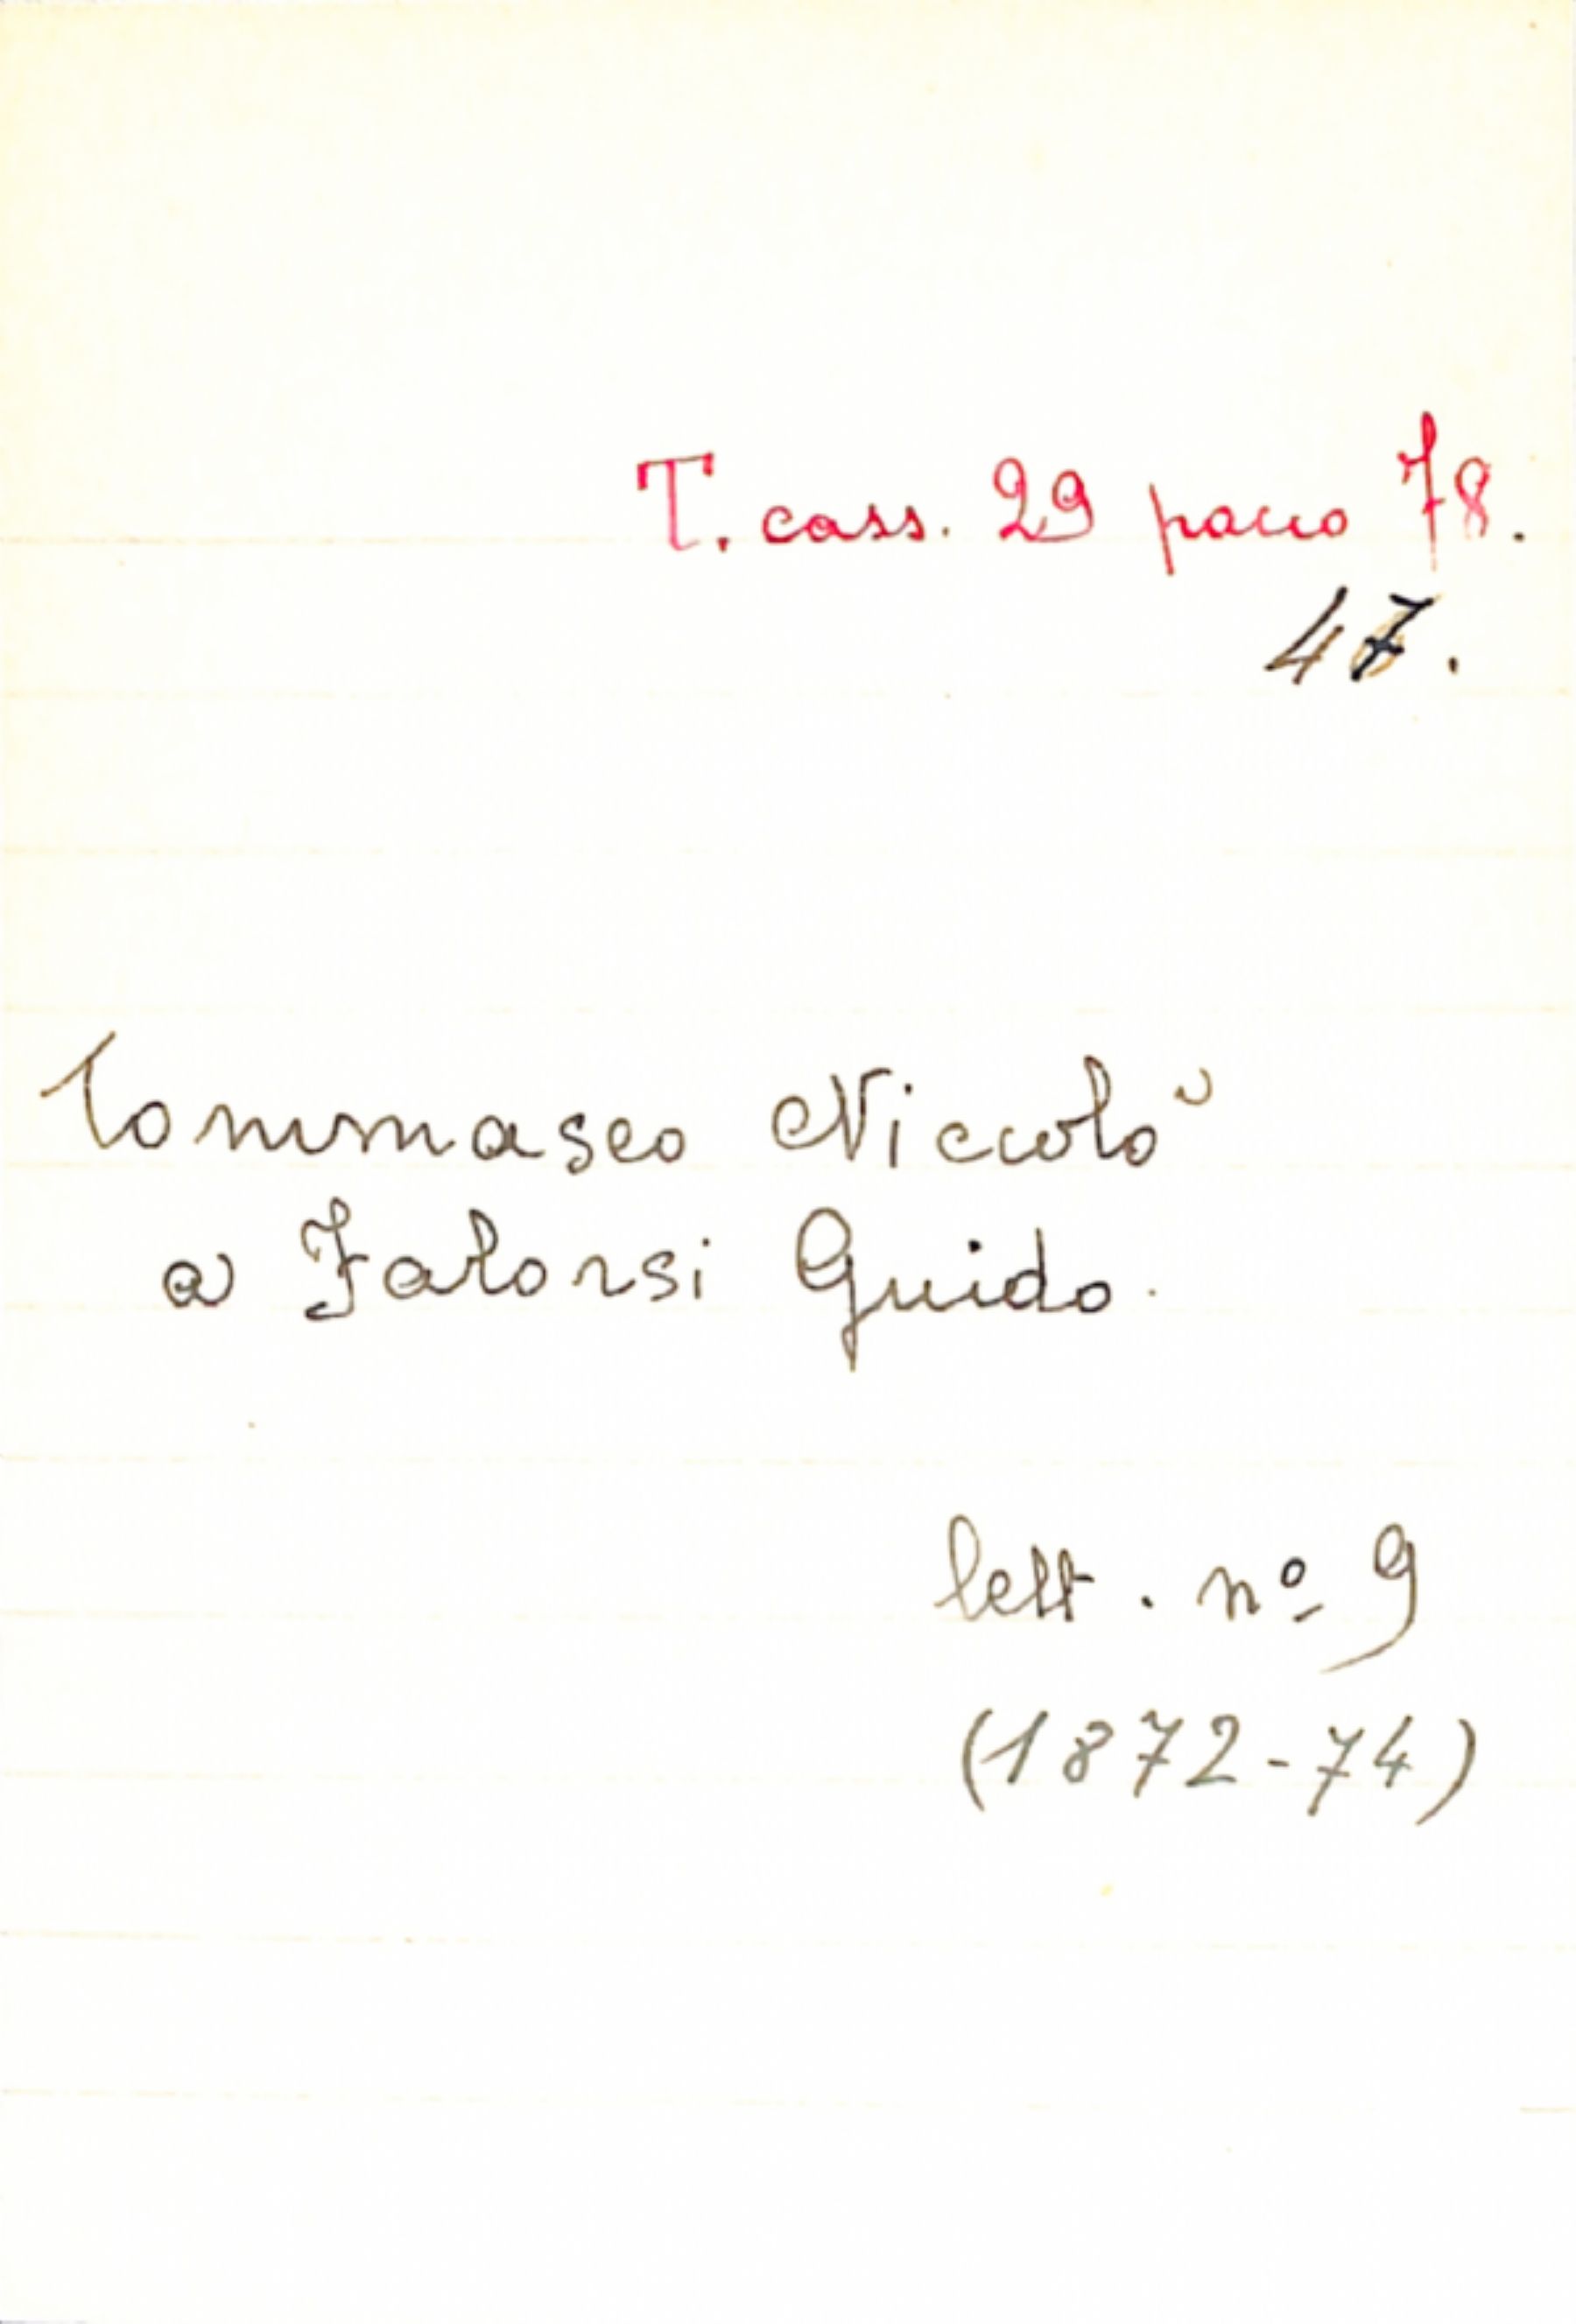 T. cass. 29 pacco 78.
47.
Tommaseo Niccolò
a Falorsi Guido.
lett. nº 9
(1872-74)